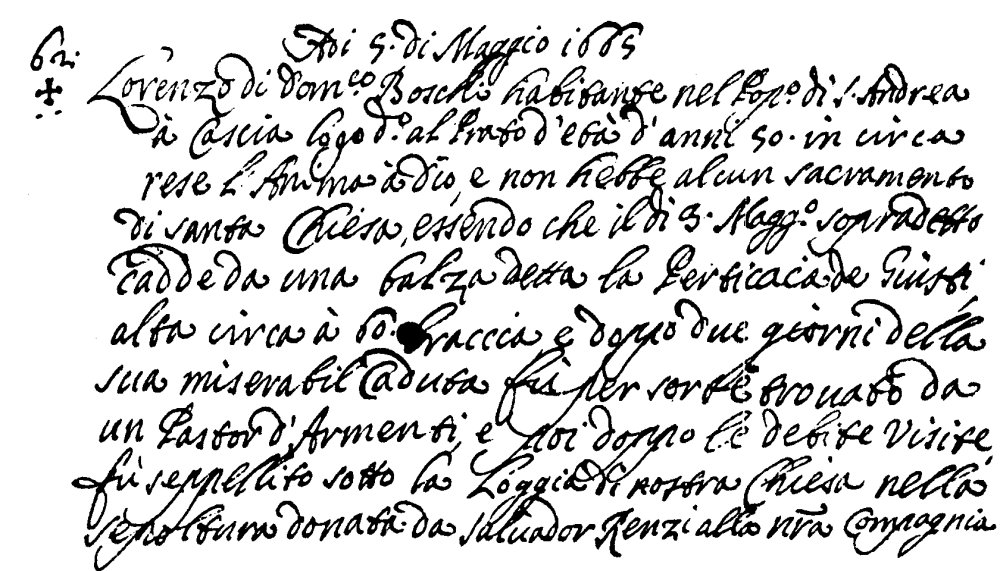 Adi 5. di Maggio 1665
62.
Lorenzo di Dom.co Boschi habitante nel Pop.o di S. Andrea
à Cascia logo d.o al Prato d'età d'anni 50. in circa
rese l'Anima à Dio, e non hebbe alcun sacramento
di santa Chiesa, essendo che il di 3. Magg.o sopradetto
cadde da una balza detta la Perticaia de Giusti
alta circa à 60. braccia e doppo due giorni della
sua miserabil Caduta fù per sorte trouato da
un Pastor d'Armenti, e poi doppo le debite Visite
fù seppellito sotto la Loggia di nostra Chiesa nella
sepoltura donata da Saluador Renzi alla nra Compagnia